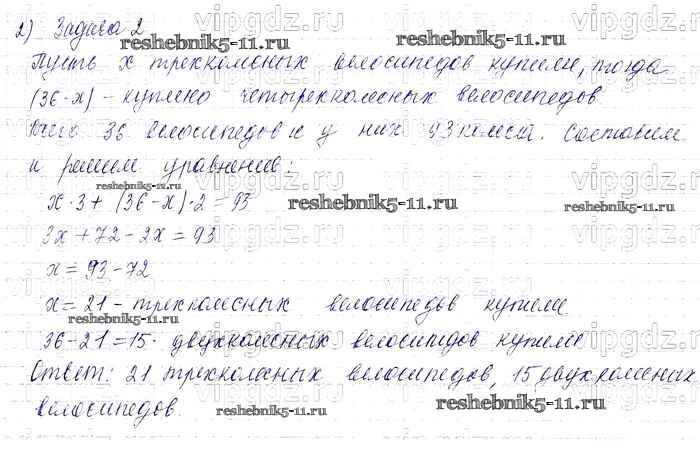 2) Задача 2
Пусть x трехколесных велосипедов купили, тогда
(36-x) - куплено четырехколесных велосипедов.
Всего 36 велосипедов и у них 93 колеса. Составим
и решим уравнение:
x·3+(36-x)·2=93
3x+72-2x=93
x=93-72
x=21 - трехколесных велосипедов купили
36-21=15. двухколесных велосипедов купили
Ответ: 21 трехколесных велосипедов, 15 двухколесных
велосипедов.
reshebnik5-11.ru
reshebnik5-11.ru
reshebnik5-11.ru
reshebnik5-11.ru
reshebnik5-11.ru
reshebnik5-11.ru
reshebnik5-11.ru
reshebnik5-11.ru
vipgdz.ru
vipgdz.ru
vipgdz.ru